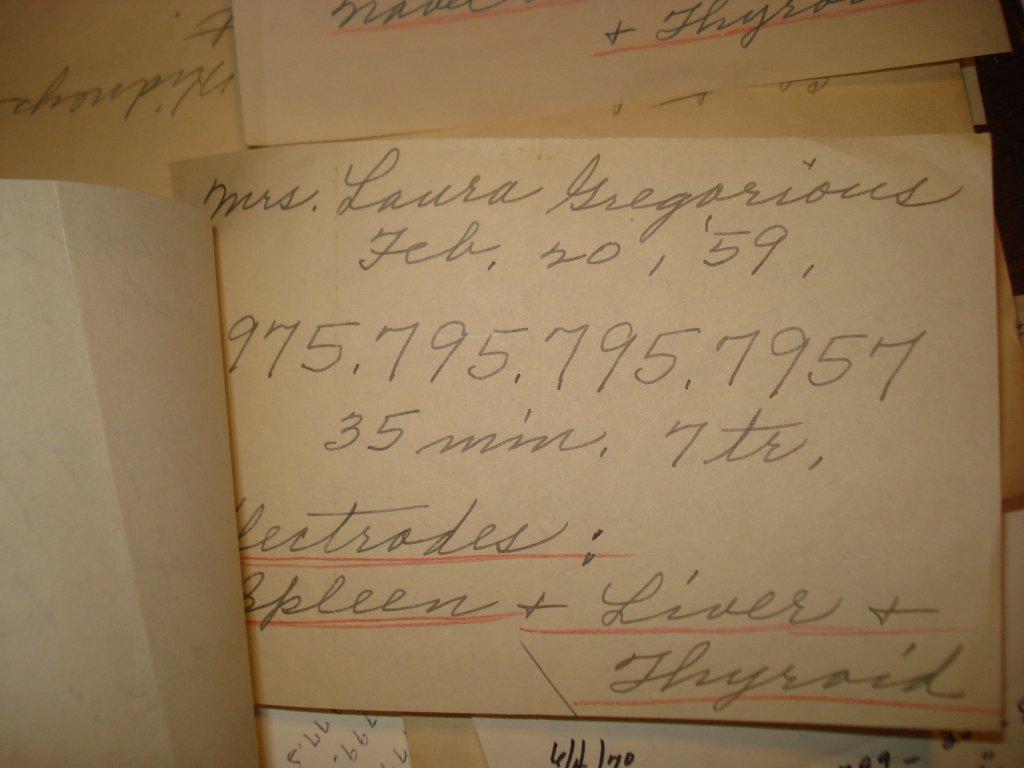 + Thyro
Kidneys
Mrs. Laura Gregorious
Feb. 20, '59,
975.795.795.7957
35 min. 7 tr.
lectrodes:
Spleen + Liver +
Thyroid